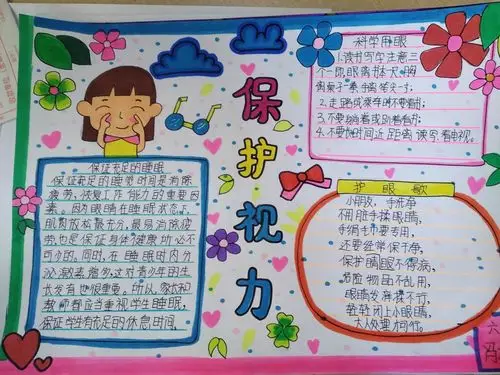 保护视力
科学用眼
1.读书写字注意三
个一，即眼离书本一尺，胸
离桌子一拳，手离笔尖一寸；
2.走路或乘车时不要看书；
3.不要躺着或趴着看书；
4.不要长时间近距离读写、看电视。
保证充足的睡眠
保证充足的睡觉时间是消除
疲劳，恢复工作能力的重要因
素。因为眼睛在睡眠状态下，
肌肉放松最充分，最易消除疲
劳，也是保证身体健康所必不
可少的。同时，在睡眠时内分
泌激素增多，这对青少年的生
长发育也很重要。所以，家长和
教师都应当重视学生睡眠，
保证学生有充足的休息时间。
护眼歌
小朋友，手洗净
不用脏手揉眼睛，
手绢毛巾要专用，
还要经常保干净，
保护眼睛不得病，
危险物品不乱用，
眼睛发痒揉不行，
轻轻闭上小眼睛，
大人处理方可行。
六